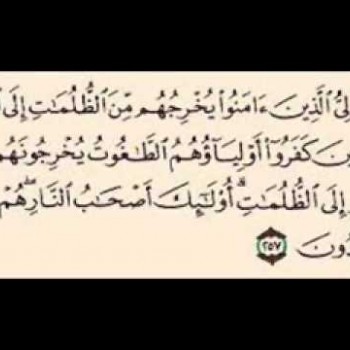 ىُّ ٱلَّذِينَ ءَامَنُوا۟ يُخْرِجُهُم مِّنَ ٱلظُّلُمَـٰتِ إِلَى
كَفَرُوٓا۟ أَوْلِيَآؤُهُمُ ٱلطَّـٰغُوتُ يُخْرِجُونَهُم
إِلَى ٱلظُّلُمَـٰتِ ۗ أُو۟لَـٰٓئِكَ أَصْحَـٰبُ ٱلنَّارِ ۖ هُمْ
دُونَ ٢٥٧